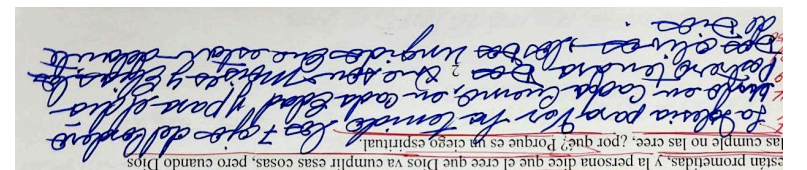 están prometidas, y la persona dice que el cree que Dios va cumplir esas cosas, pero cuando Dios
las cumple no las cree, ¿por qué? Porque es un ciego espiritual.
La Iglesia para Vor ha tenido los 7 ojos del cordero
uno en cada cuerno, en cada Edad y para el dia
Postrero tendra Dos 2 que son Moises y Elias los
Dos olivos, los Dos ungidos que estan delante
de Dios